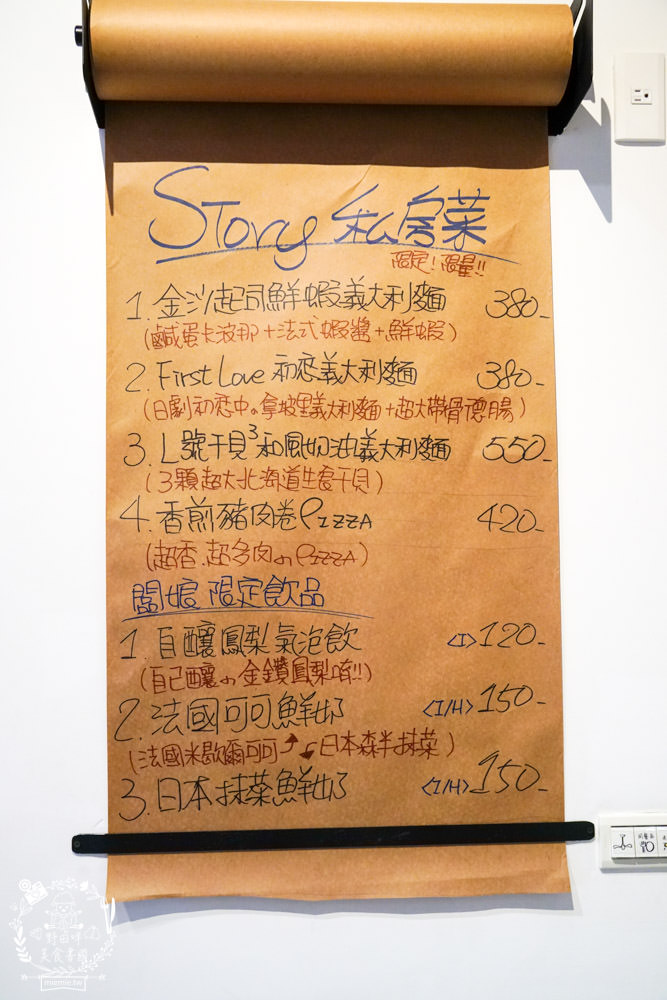 Story 私房菜
限定!限量!!
1. 金沙起司鮮蝦義大利麵 380-
(鹹蛋卡波那+法式蝦醬+鮮蝦)
2. First Love 初恋義大利麵 380-
(日劇初恋中の拿坡里義大利麵+超大帶骨德腸)
3. L號干貝³和風奶油義大利麵 550-
(3顆超大北海道生食干貝)
4. 香煎豬肉卷PIZZA 420-
(超香.超多肉のPIZZA)
闆娘 限定飲品
1. 自釀鳳梨氣泡飲 <I> 120-
(自己釀の金鑽鳳梨唷!!)
2. 法國可可鮮奶 <I/H> 150-
(法國米歇爾可可↑ ↓日本森半抹茶)
3. 日本抹茶鮮奶 <I/H> 150-
美食書櫃
miemie.tw